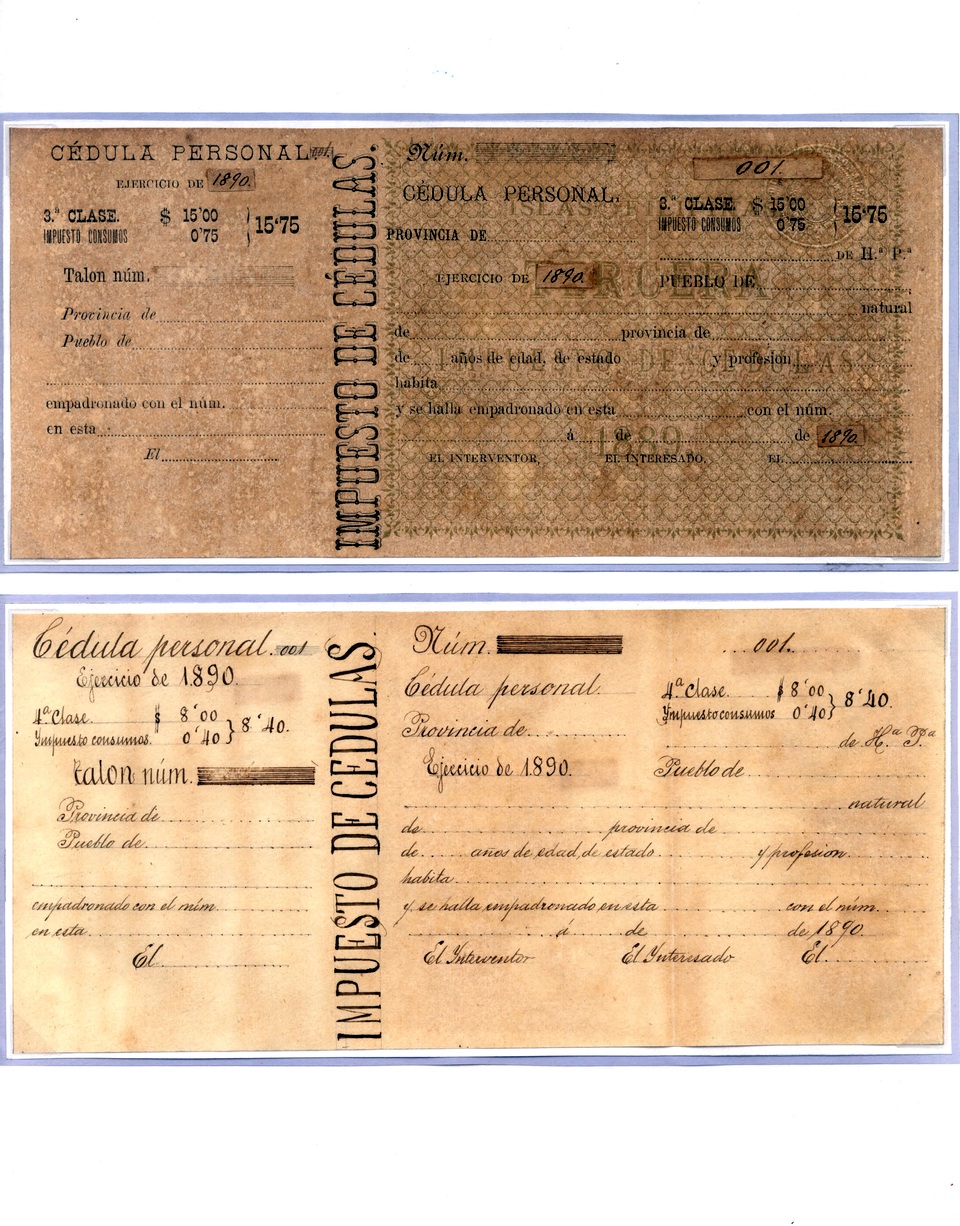 CÉDULA PERSONAL 001
EJERCICIO DE 1890.
3.ª CLASE. $ 15'00
IMPUESTO CONSUMOS 0'75
15'75
Talon núm.
Provincia de
Pueblo de
empadronado con el núm.
en esta
El
IMPUESTO DE CÉDULAS.
Núm.
001.
CÉDULA PERSONAL.
3.ª CLASE. $ 15'00
IMPUESTO CONSUMOS 0'75
15'75
PROVINCIA DE
DE H.ª P.ª
TERCERA
EJERCICIO DE 1890.
PUEBLO DE
natural
de provincia de
de años de edad, de estado y profesion
IMPUESTO DE CEDULAS
habita
y se halla empadronado en esta con el núm.
á de de 1890.
EL INTERVENTOR, EL INTERESADO, EL
Cédula personal. 001
Ejercicio de 1.890.
4ª Clase. $ 8'00
Impuesto consumos. 0'40
8'40.
Talon núm.
Provincia de
Pueblo de
empadronado con el núm.
en esta
El
IMPUESTO DE CEDULAS.
Núm.
001.
Cédula personal.
4ª Clase. $ 8'00
Impuesto consumos 0'40
8'40.
Provincia de
de Hª Pª
Ejercicio de 1.890.
Pueblo de
natural
de provincia de
de años de edad, de estado y profesion.
habita
y se halla empadronado en esta con el núm.
á de de 1890.
El Interventor El Interesado El